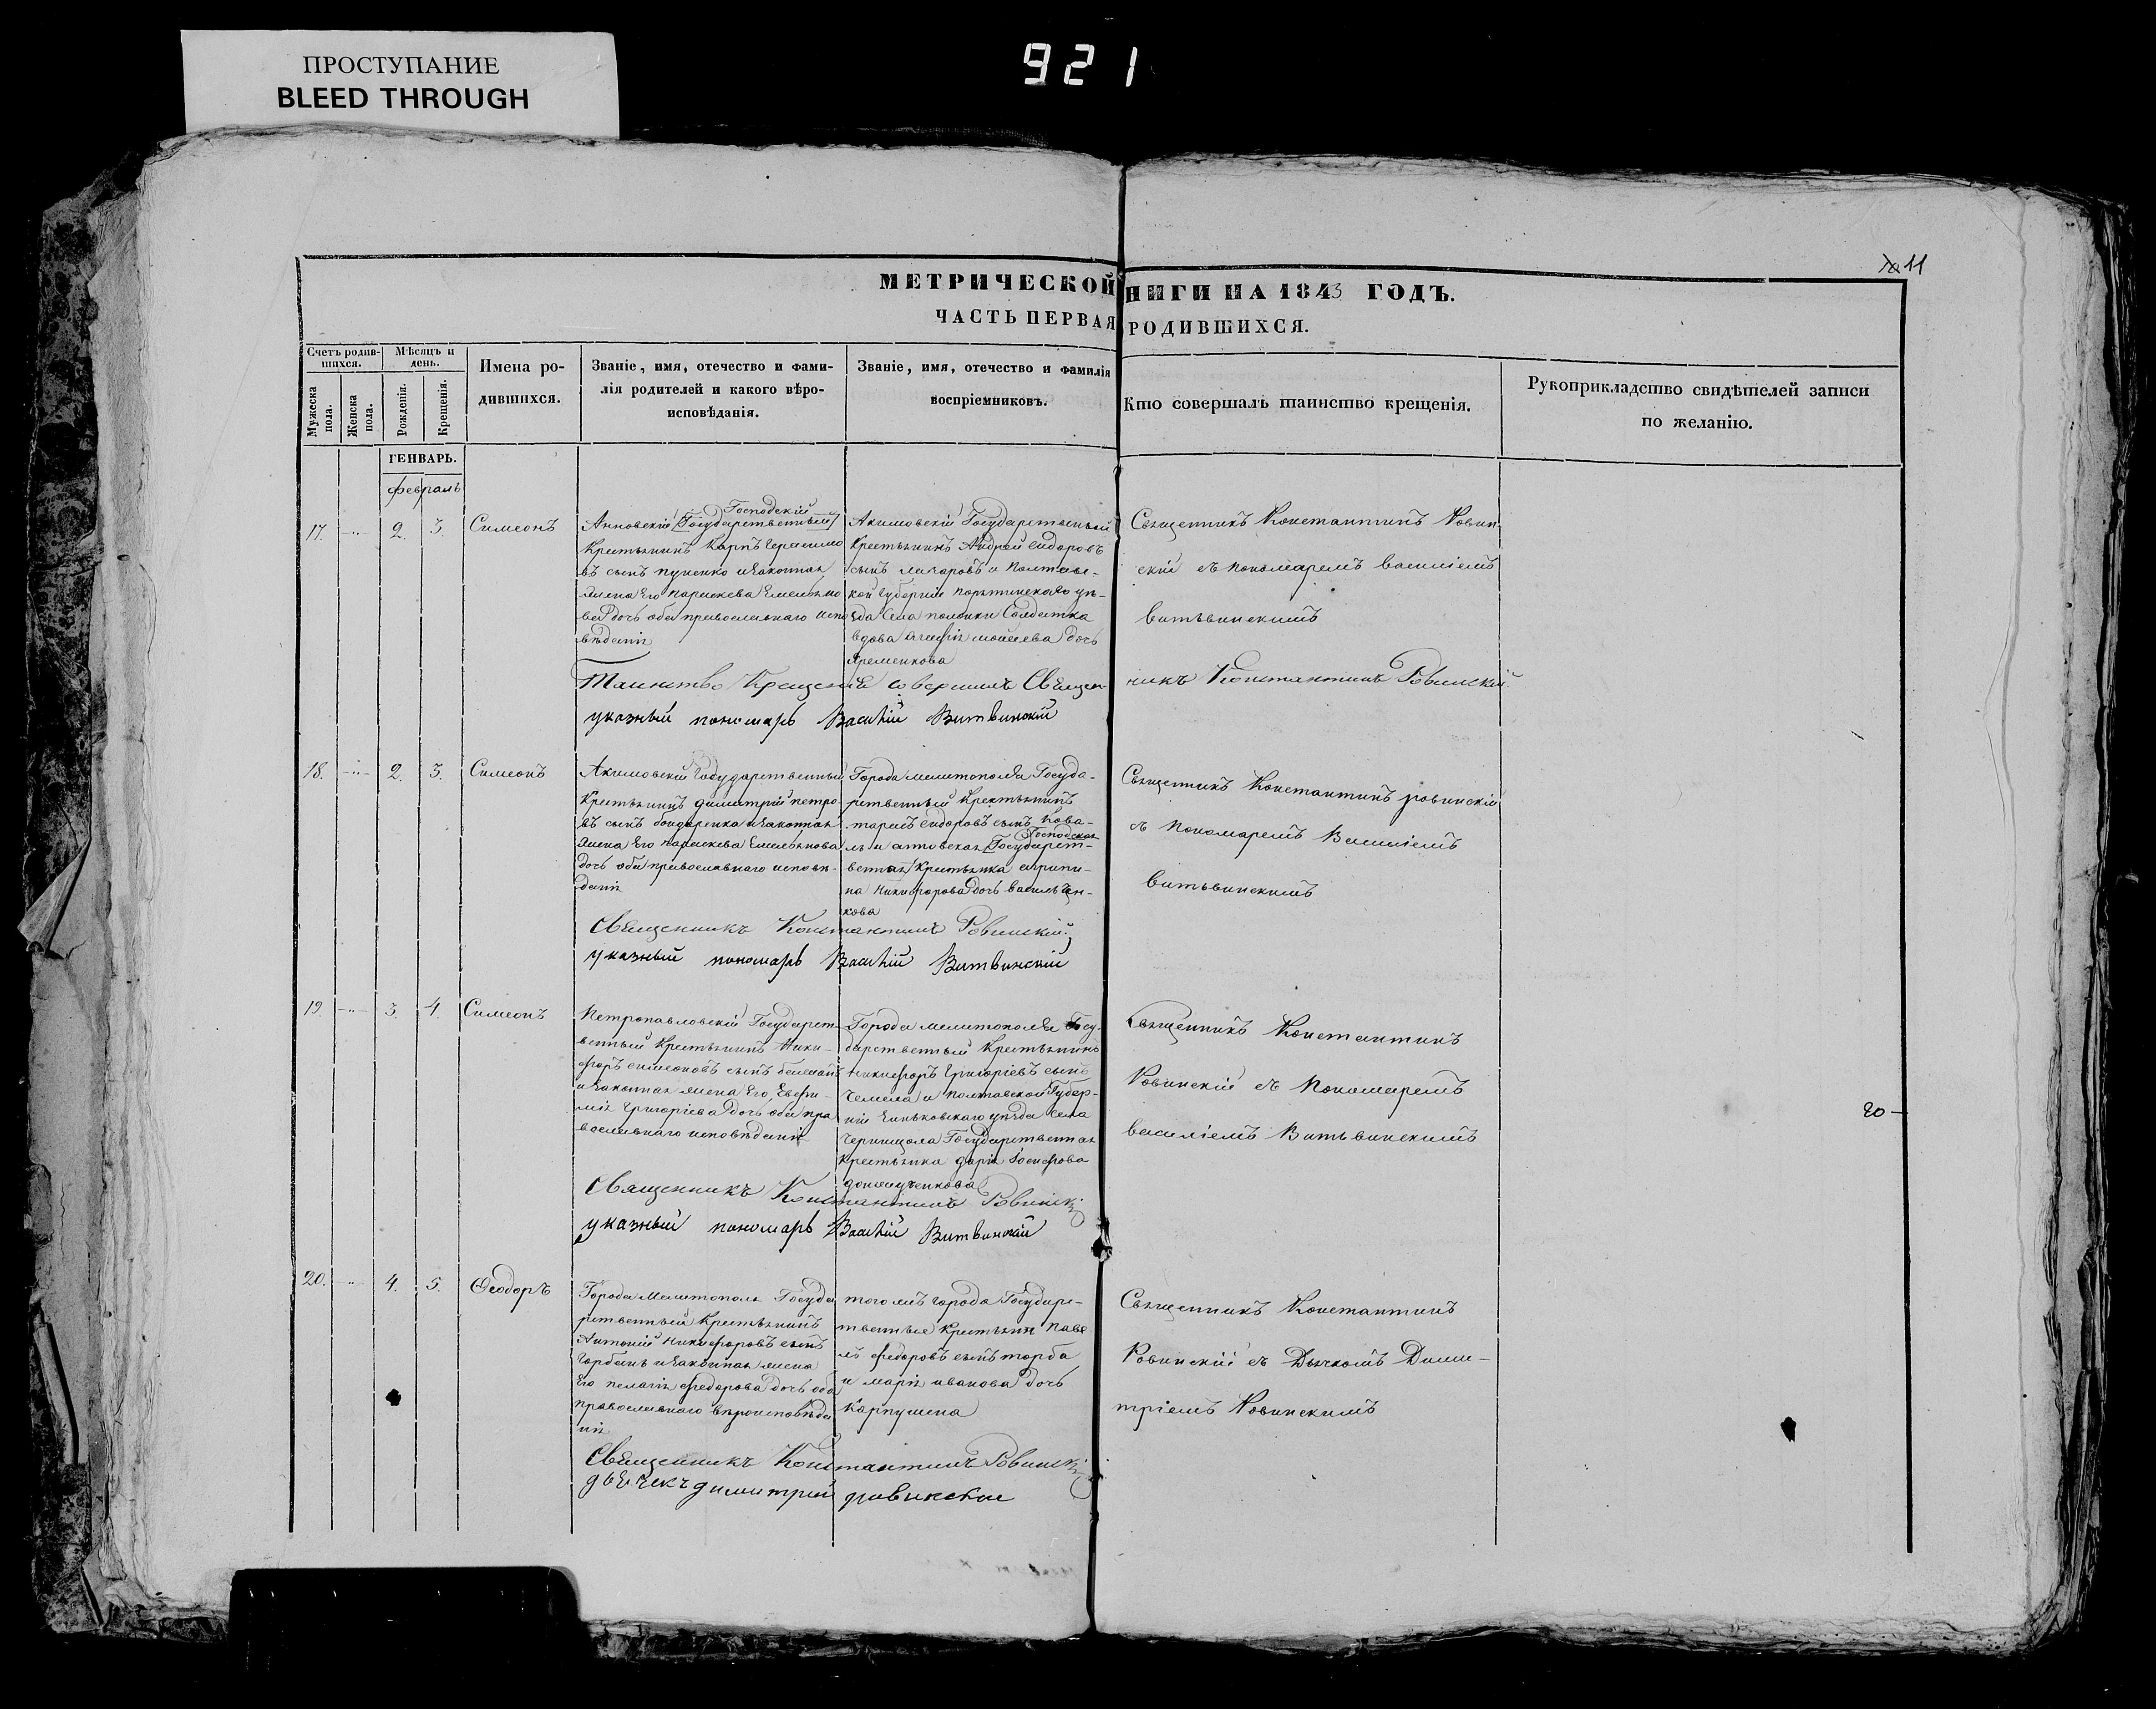 ПРОСТУПАНИЕ
BLEED THROUGH
921
11
МЕТРИЧЕСКОЙ НИГИ НА 1843 ГОДЪ.
ЧАСТЬ ПЕРВАЯ РОДИВШИХСЯ.
Счетъ родив-
шихся.
Мужеска
пола.
Женска
пола.
Мѣсяцъ и
день.
Рожденія.
Крещенія.
Имена ро-
дившихся.
Званіе, имя, отечество и фами-
лія родителей и какого вѣро-
исповѣданія.
Званіе, имя, отечество и фамилія
воспріемниковъ.
Кто совершалъ таинство крещенія.
Рукоприкладство свидѣтелей записи
по желанію.
ГЕНВАРЬ.
февраль
17. 2. 3. Симеонъ
Господскій
Анновскій (Государственный)
Крестьянинъ Карпъ Герасимо
въ сынъ пуненко и законная
жена Его Параскева Емельяно
ва дочь оба православнаго испо
вѣданія
Акимовскій Государственный
Крестьянинъ Андрей Сидоровъ
сынъ и Полтавс-
кой Губерніи уѣ-
зда Села Солдатка
вдова Агафія моисеева дочь
Яременкова
Священникъ Константинъ Ровин-
скій съ пономаремъ василіемъ
витвинскимъ
Таинство Крещенія совершилъ Священ-
никъ Константинъ Ровинскій
указный пономарь Василій Витвинскій
18. 2. 3. Симеонъ
Акимовскій Государственный
Крестьянинъ димитрій петро
въ сынъ бондаренка и законная
жена Его параскева Емельянова
дочь оба православнаго исповѣ-
данія
Города мелитополя Госуда-
рственный Крестьянинъ
сидоровъ сынъ Кова-
Господская
ль и анновская (Государст-
венная) Крестьянка агрипи-
на Никифорова дочь Васильчен-
кова
Священникъ Константинъ ровинскій
съ Пономаремъ Василіемъ
витьвинскимъ
Священникъ Константинъ Ровинскій
указный пономарь Василій Витвинскій
19. 3. 4. Симеонъ
Петропавловскій Государст
венный Крестьянинъ Ники-
форъ симеоновъ сынъ
и законная жена Его Евфи-
мія Григоріева дочь оба пра
вославнаго исповѣданія
Города мелитополя Госу-
дарственный Крестьянинъ
Никифоръ Григоріевъ сынъ
Чемела и полтавской Губер-
ніи Зиньковскаго уѣзда села
Государственная
Крестьянка дарія Іосифова
Священникъ Константинъ
Ровинскій съ Пономаремъ
василіемъ Витьвинскимъ
20
Священникъ Константинъ Ровинскі
указный пономарь Василій Витвинскій
20. 4. 5. Ѳеодоръ
Города Мелитополя Госуда
рственный Крестьянинъ
Антоній никифоровъ сынъ
Горбань и законная жена
Его пелагія федорова дочь оба
православнаго вѣроисповѣда
нія
того жъ города Государс-
твенные крестьяни Паве
лъ федоровъ сынъ торба
и марія иванова дочь
Карпушена
Священникъ Константинъ
Ровинскій съ Дьячкомъ Дими-
тріемъ Ровинскимъ
Священникъ Константинъ Ровинскі
дьячекъ димитрій ровинскій